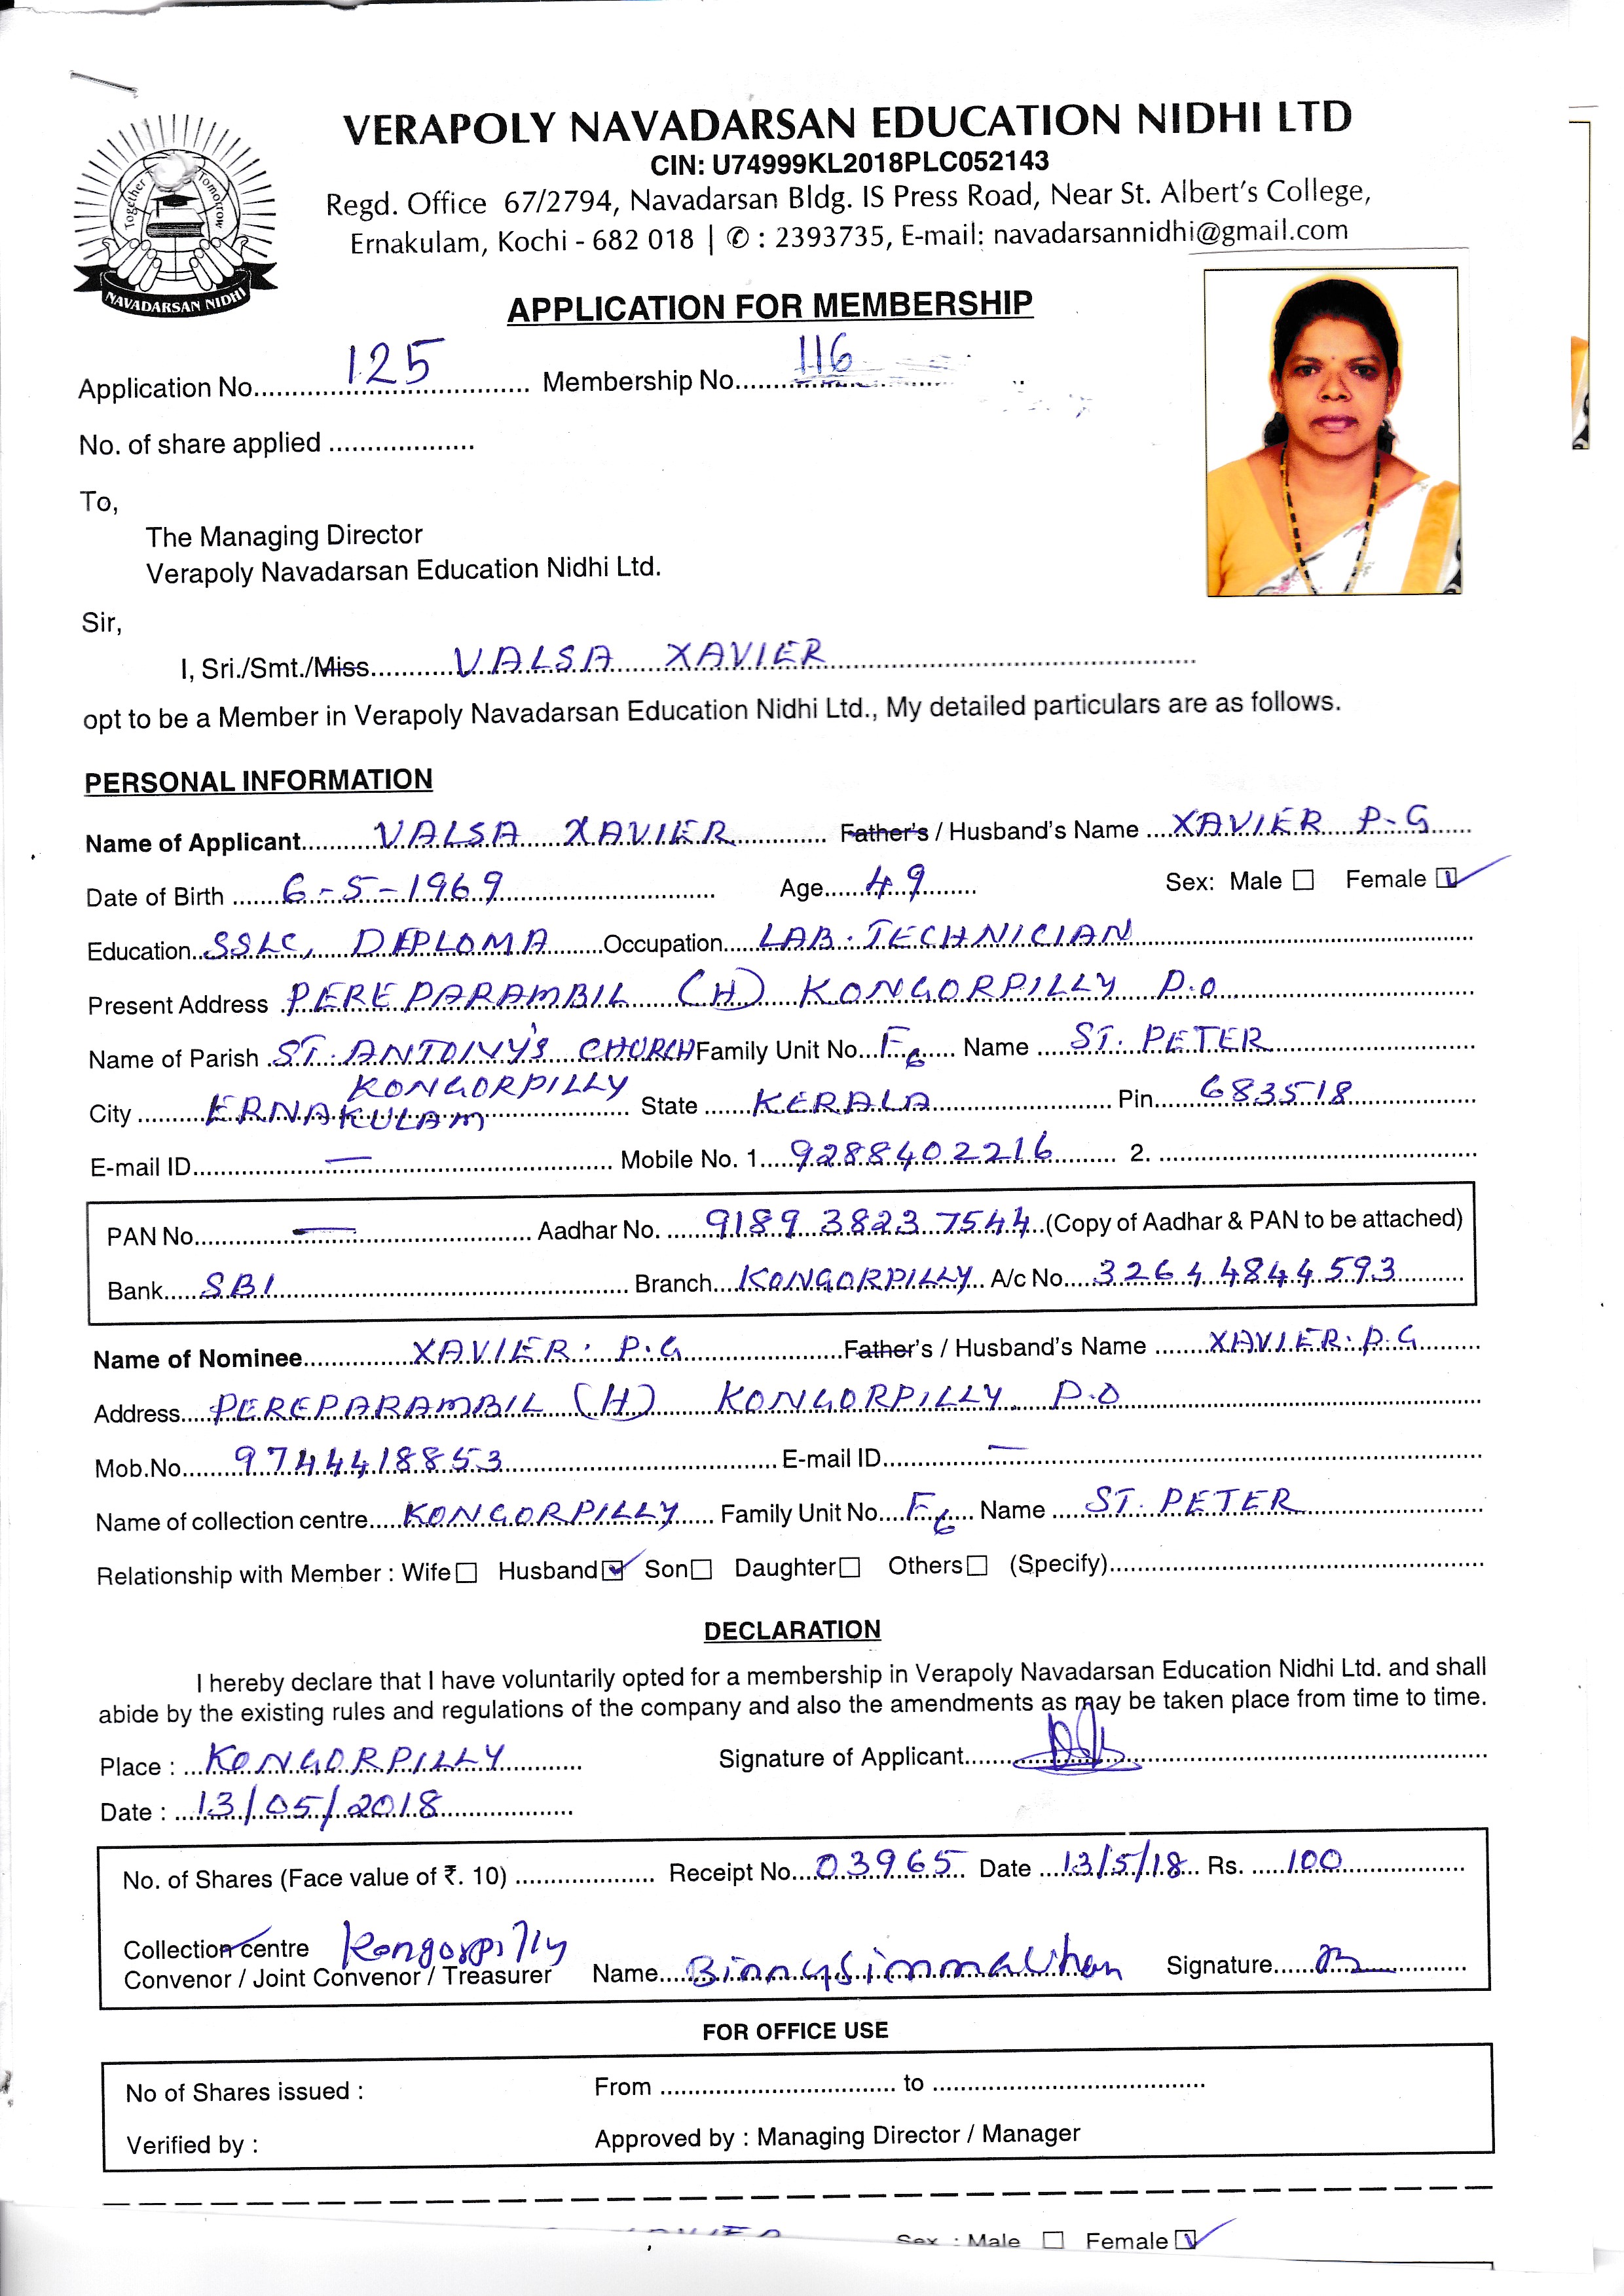 VERAPOLY NAVADARSAN EDUCATION NIDHI LTD
CIN: U74999KL2018PLC052143
Regd. Office 67/2794, Navadarsan Bldg. IS Press Road, Near St. Albert's College,
Ernakulam, Kochi - 682 018 | ✆ : 2393735, E-mail: navadarsannidhi@gmail.com
Together Tomorrow
NAVADARSAN NIDHI
APPLICATION FOR MEMBERSHIP
Application No. 125 Membership No. 116
No. of share applied
To,
The Managing Director
Verapoly Navadarsan Education Nidhi Ltd.
Sir,
I, Sri./Smt./Miss VALSA XAVIER
opt to be a Member in Verapoly Navadarsan Education Nidhi Ltd., My detailed particulars are as follows.
PERSONAL INFORMATION
Name of Applicant VALSA XAVIER Father's / Husband's Name XAVIER P-G
Date of Birth 6-5-1969 Age 49 Sex: Male ☐ Female ☑
Education SSLC, DIPLOMA Occupation LAB. TECHNICIAN
Present Address PEREPARAMBIL (H) KONGORPILLY P.O
Name of Parish ST. ANTONY'S CHURCH Family Unit No. F6 Name ST. PETER
KONGORPILLY
City ERNAKULAM State KERALA Pin 683518
E-mail ID — Mobile No. 1. 9288402216 2.
PAN No. — Aadhar No. 9189 3823 7544 (Copy of Aadhar & PAN to be attached)
Bank SBI Branch KONGORPILLY A/c No. 32644844593
Name of Nominee XAVIER. P.G Father's / Husband's Name XAVIER. P.G
Address PEREPARAMBIL (H) KONGORPILLY. P.O
Mob.No. 9744418853 E-mail ID —
Name of collection centre KONGORPILLY Family Unit No. F6 Name ST. PETER
Relationship with Member : Wife ☐ Husband ☑ Son ☐ Daughter ☐ Others ☐ (Specify)
DECLARATION
I hereby declare that I have voluntarily opted for a membership in Verapoly Navadarsan Education Nidhi Ltd. and shall
abide by the existing rules and regulations of the company and also the amendments as may be taken place from time to time.
Place : KONGORPILLY Signature of Applicant
Date : 13/05/2018
No. of Shares (Face value of ₹. 10) Receipt No. 03965 Date 13/5/18 Rs. 100
Collection centre Kongorpilly
Convenor / Joint Convenor / Treasurer Name Signature
FOR OFFICE USE
No of Shares issued : From to
Verified by : Approved by : Managing Director / Manager
Sex : Male ☐ Female ☑